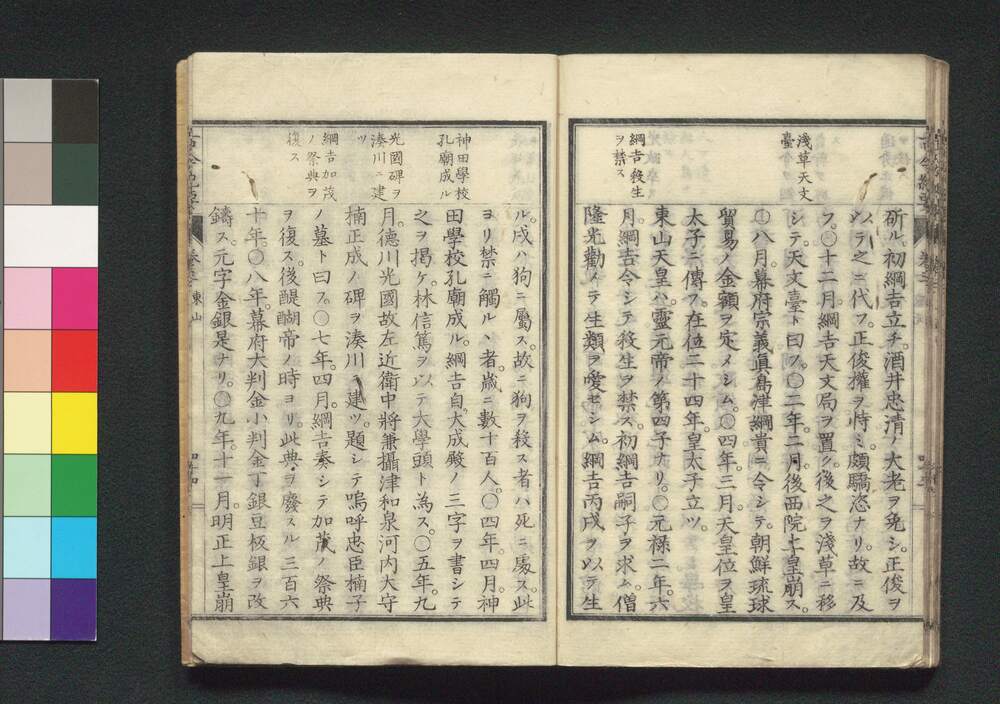 淺草天文
臺
綱吉殺生
ヲ禁ス
斫ル。初綱吉立チ。酒井忠清ノ大老ヲ免シ。正俊ヲ
以テ之ニ代フ。正俊權ヲ恃ミ。頗驕恣ナリ。故ニ及
フ。〇十二月。綱吉天文局ヲ置ク。後之ヲ淺草ニ移
シテ。天文臺ト曰フ。〇二年。二月。後西院上皇崩ス。
〇八月。幕府宗義眞島津綱貴ニ令シテ。朝鮮琉球
貿易ノ金額ヲ定メシム。〇四年。三月。天皇位ヲ皇
太子ニ傳フ。在位二十四年。皇太子立ツ。
東山天皇ハ。靈元帝ノ第四子ナリ。〇元祿二年。六
月。綱吉令シテ殺生ヲ禁ス。初綱吉嗣子ヲ求ム。僧
隆光勸メテ生類ヲ愛セシム。綱吉丙戌ヲ以テ生
神田學校
孔廟成ル
光國碑ヲ
湊川ニ建
ツ
綱吉加茂
ノ祭典ヲ
復ス
ル。戌ハ狗ニ屬ス。故ニ狗ヲ殺ス者ハ死ニ處ス。此
ヨリ禁ニ觸ルヽ者。歲ニ數十百人。〇四年。四月。神
田學校孔廟成ル。綱吉自大成殿ノ三字ヲ書シテ
之ヲ揭ケ。林信篤ヲ以テ大學頭ト為ス。〇五年。九
月。德川光國故左近衛中將兼攝津和泉河内大守
楠正成ノ碑ヲ湊川ニ建ツ。題シテ嗚呼忠臣楠子
ノ墓ト曰フ。〇七年。四月。綱吉奏シテ加茂ノ祭典
ヲ復ス。後醍醐帝ノ時ヨリ。此典ヲ廢スル三百六
十年。〇八年。幕府大判金小判金丁銀豆板銀ヲ改
鑄ス。元字金銀是ナリ。〇九年。十一月。明正上皇崩
東山